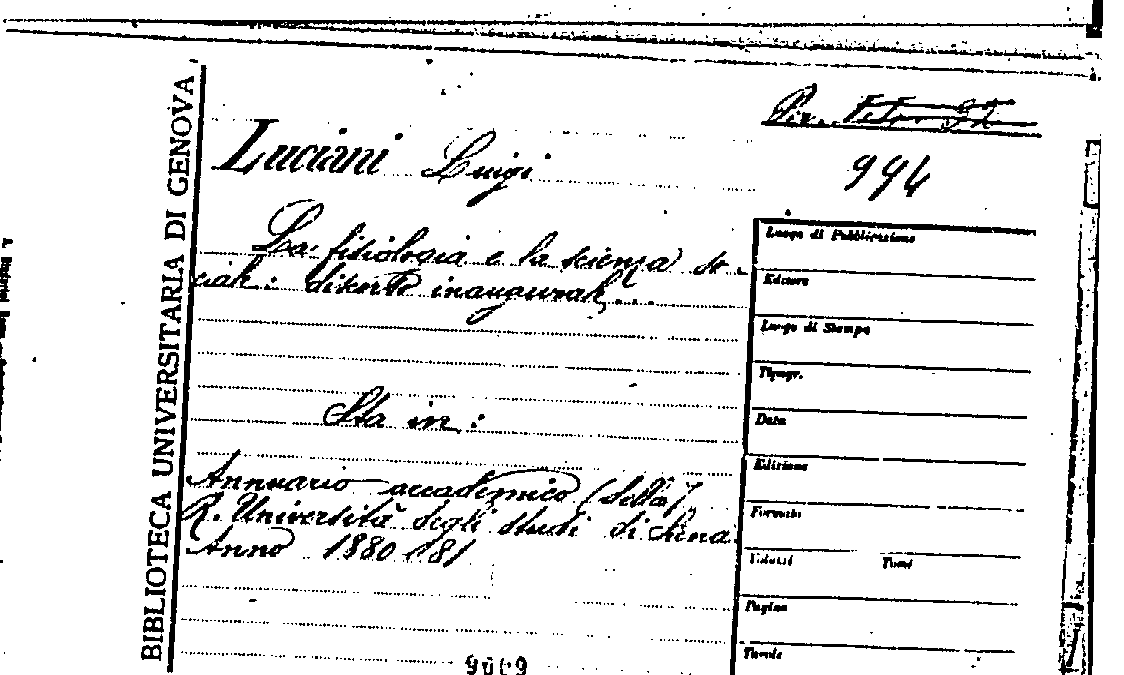 BIBLIOTECA UNIVERSITARIA DI GENOVA
Luciani Luigi
994
La fisiologia e la scienza so-
ciale: discorso inaugurale
Sta in:
Annuario accademico (della)
R. Università degli studi di Siena.
Anno 1880/81
Luogo di Pubblicazione
Editore
Luogo di Stampa
Tipogr.
Data
Edizione
Formato
Volumi Tomi
Pagine
Tavole